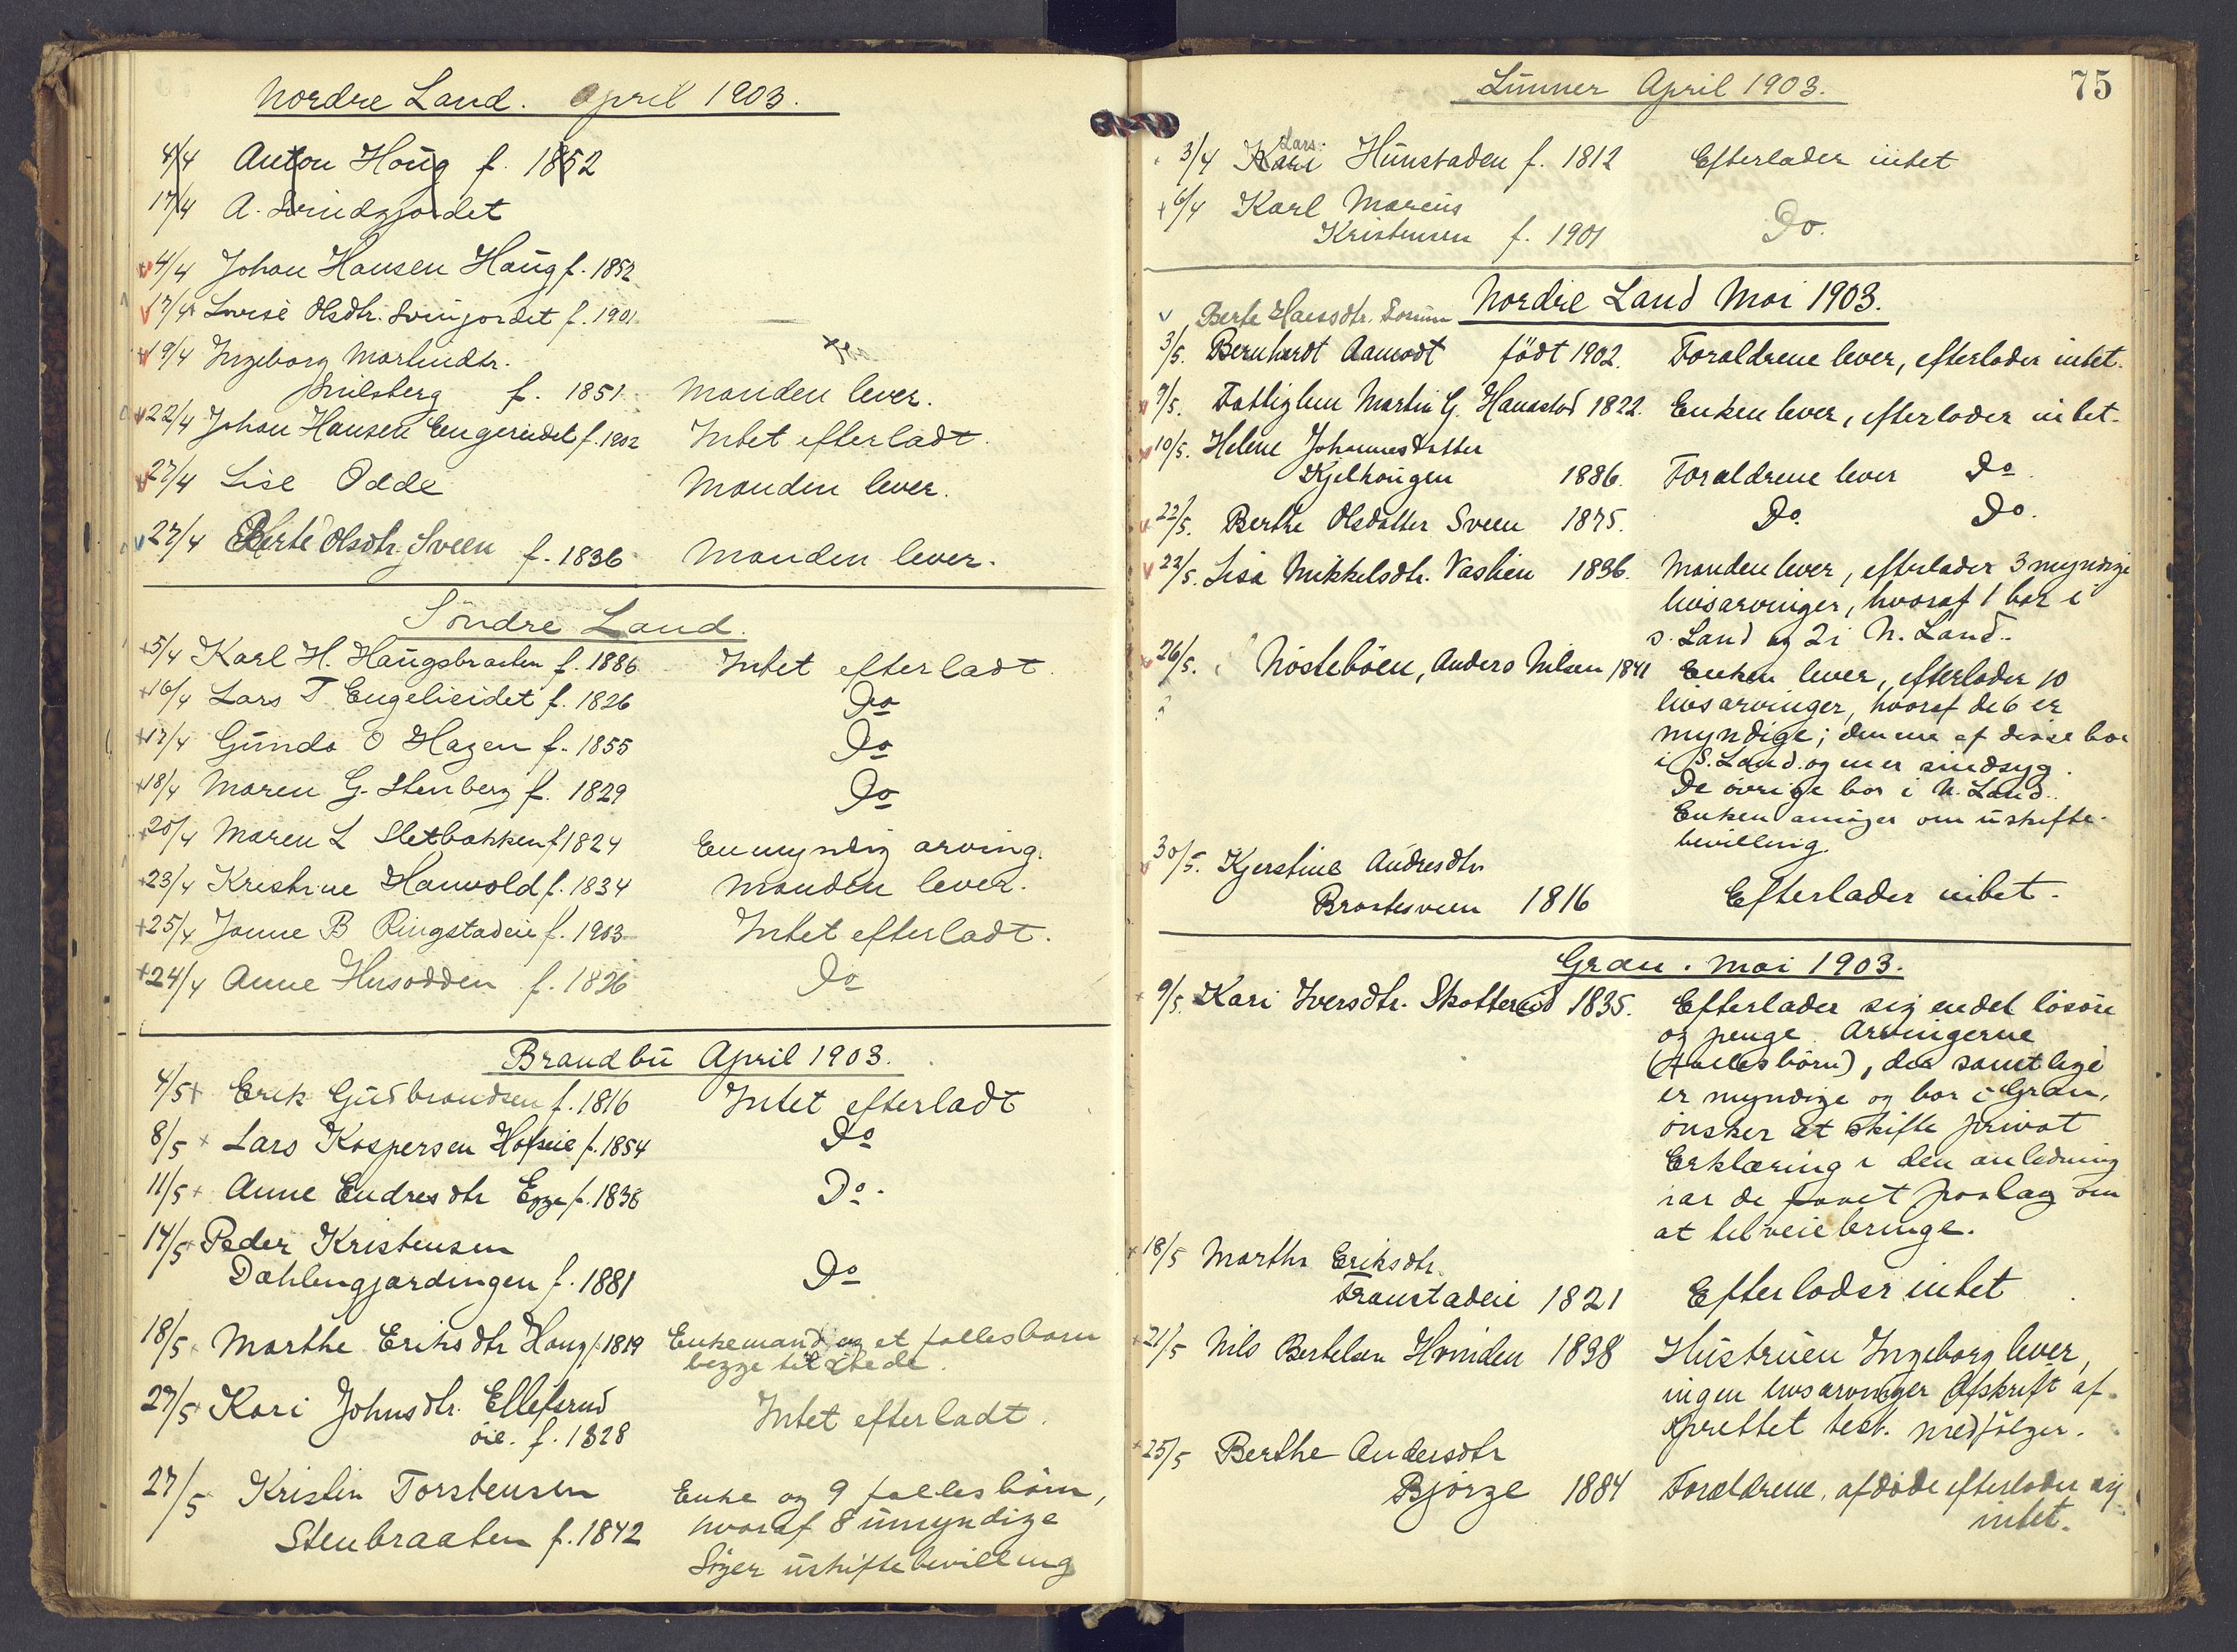 Nordre Land. April 1903.
4/4 Anton Houg f. 1852
17/4 A. Svindgjordet
4/4 Johan Hansen Haug f. 1852
17/4 Lovise Olsdtr. Svinjordet f. 1901
19/4 Ingeborg Martindtr.
Smilsberg f. 1851 Manden lever.
22/4 Johan Hansen Engerudet f. 1902 Intet efterladt.
27/4 Lise Odde Manden lever.
27/4 Berte Olsdtr. Sveen f. 1836 Manden lever.
Söndre Land.
5/4 Karl H. Haugsbraaten f. 1886 Intet efterladt.
16/4 Lars T. Engelieidet f. 1826 Do
17/4 Gunda O Hagen f. 1855 Do
18/4 Maren G. Stenberg f. 1829 Do
20/4 Maren L Sletbakken f 1824 En myndig arving.
23/4 Kristine Hanvold f. 1834 Manden lever.
25/4 Janne B Ringstadeie f. 1903 Intet efterladt.
24/4 Anne Husodden f. 1826 Do
Brandbu April 1903.
4/5 Erik Gudbrandsen f. 1816 Intet efterladt
8/5 Lars Kaspersen Hofseie f. 1854 Do
11/5 Anne Endresdtr Egge f. 1838 Do.
14/5 Peder Kristensen
Dæhlengjærdingen f. 1881 Do
18/5 Marthe Eriksdtr Haug f. 1819 Enkemand og et fællesbarn
begge tilstede.
27/5 Kari Johnsdtr. Ellefsrud
eie. f. 1828 Intet efterladt.
27/5 Kristen Torstensen Enke og 9 fælles börn,
Stenbraaten f. 1842 hvoraf 8 umyndige
Söger uskiftebevilling
75
Lunner April 1903.
Lars
3/4 Kari Hunstaden f. 1812 Efterlader intet
6/4 Karl Marcus
Kristensen f. 1901 Do.
Nordre Land Mai 1903.
3/5. Bernhardt Aamodt födt 1902. Forældrene lever, efterlader intet.
7/5. Fattiglem Martin G. Hanastad 1822. Enken lever, efterlader intet.
10/5. Helene Johannesdatter
Kjelhaugen 1886. Forældrene lever Do.
22/5. Berthe Olsdatter Sveen 1875. Do. Do.
22/5. Lisa Mikkelsdtr. Vaslien 1836. Manden lever, efterlader 3 myndige
livsarvinger, hvoraf 1 bor i
S. Land og 2 i N. Land.
26/5. Nösteböen, Anders Nilsen 1841 Enken lever, efterlader 10
livsarvinger, hvoraf de 6 er
myndige; den ene af disse bor
i S. Land. og en er sindsyg.
De övrige bor i N. Land.
Enken ansöger om uskifte-
bevilling.
30/5. Kjerstine Andresdtr
Bratesveen 1816 Efterlader intet.
Gran. Mai 1903.
9/5. Kari Iversdtr. Skottereid 1835. Efterlader sig endel lösöre
og penge. Arvingerne
(fællesbörn), der samtlige
er myndige og bor i Gran,
önsker at skifte privat
Erklæring i den anledning
har de faaet paalæg om
at tilveiebringe.
18/5 Marthe Eriksdtr.
Framstadeie 1821 Efterlader intet
21/5 Nils Bertelsen Hvinden 1838 Hustruen Ingeborg lever,
ingen livsarvinger Afskrift af
oprettet test. medfölger.
25/5 Berthe Andersdtr
Björge 1884 Forældrene, afdöde efterlader sig
intet.